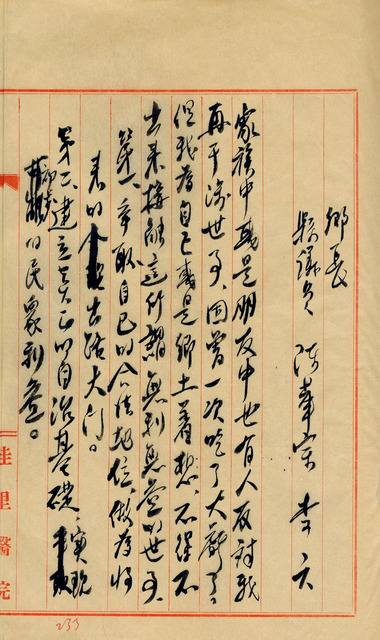 鄉長
縣議員 陳華宗 李六
家族中或是朋友中也有人反對我
再干涉世事、因曾一次吃了大虧了。
但我為自己或是鄉土着想、不得不
出来接觸這所謂無利無益的世事、
第一、爭取自己的合法地位、做為將
来的出路大门。
第二、建立真正的自治基礎、實現
的民眾利益。
佳里醫院
233